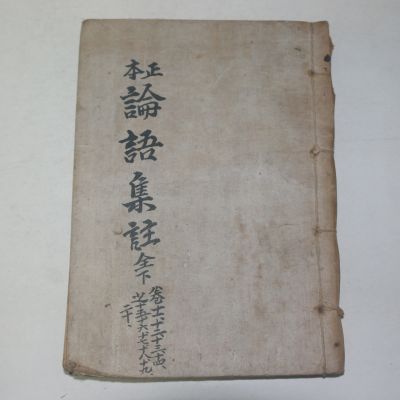 正本
論語集註全下
卷十一、十二十三十四、
十五十六十七十八十九、
二十、